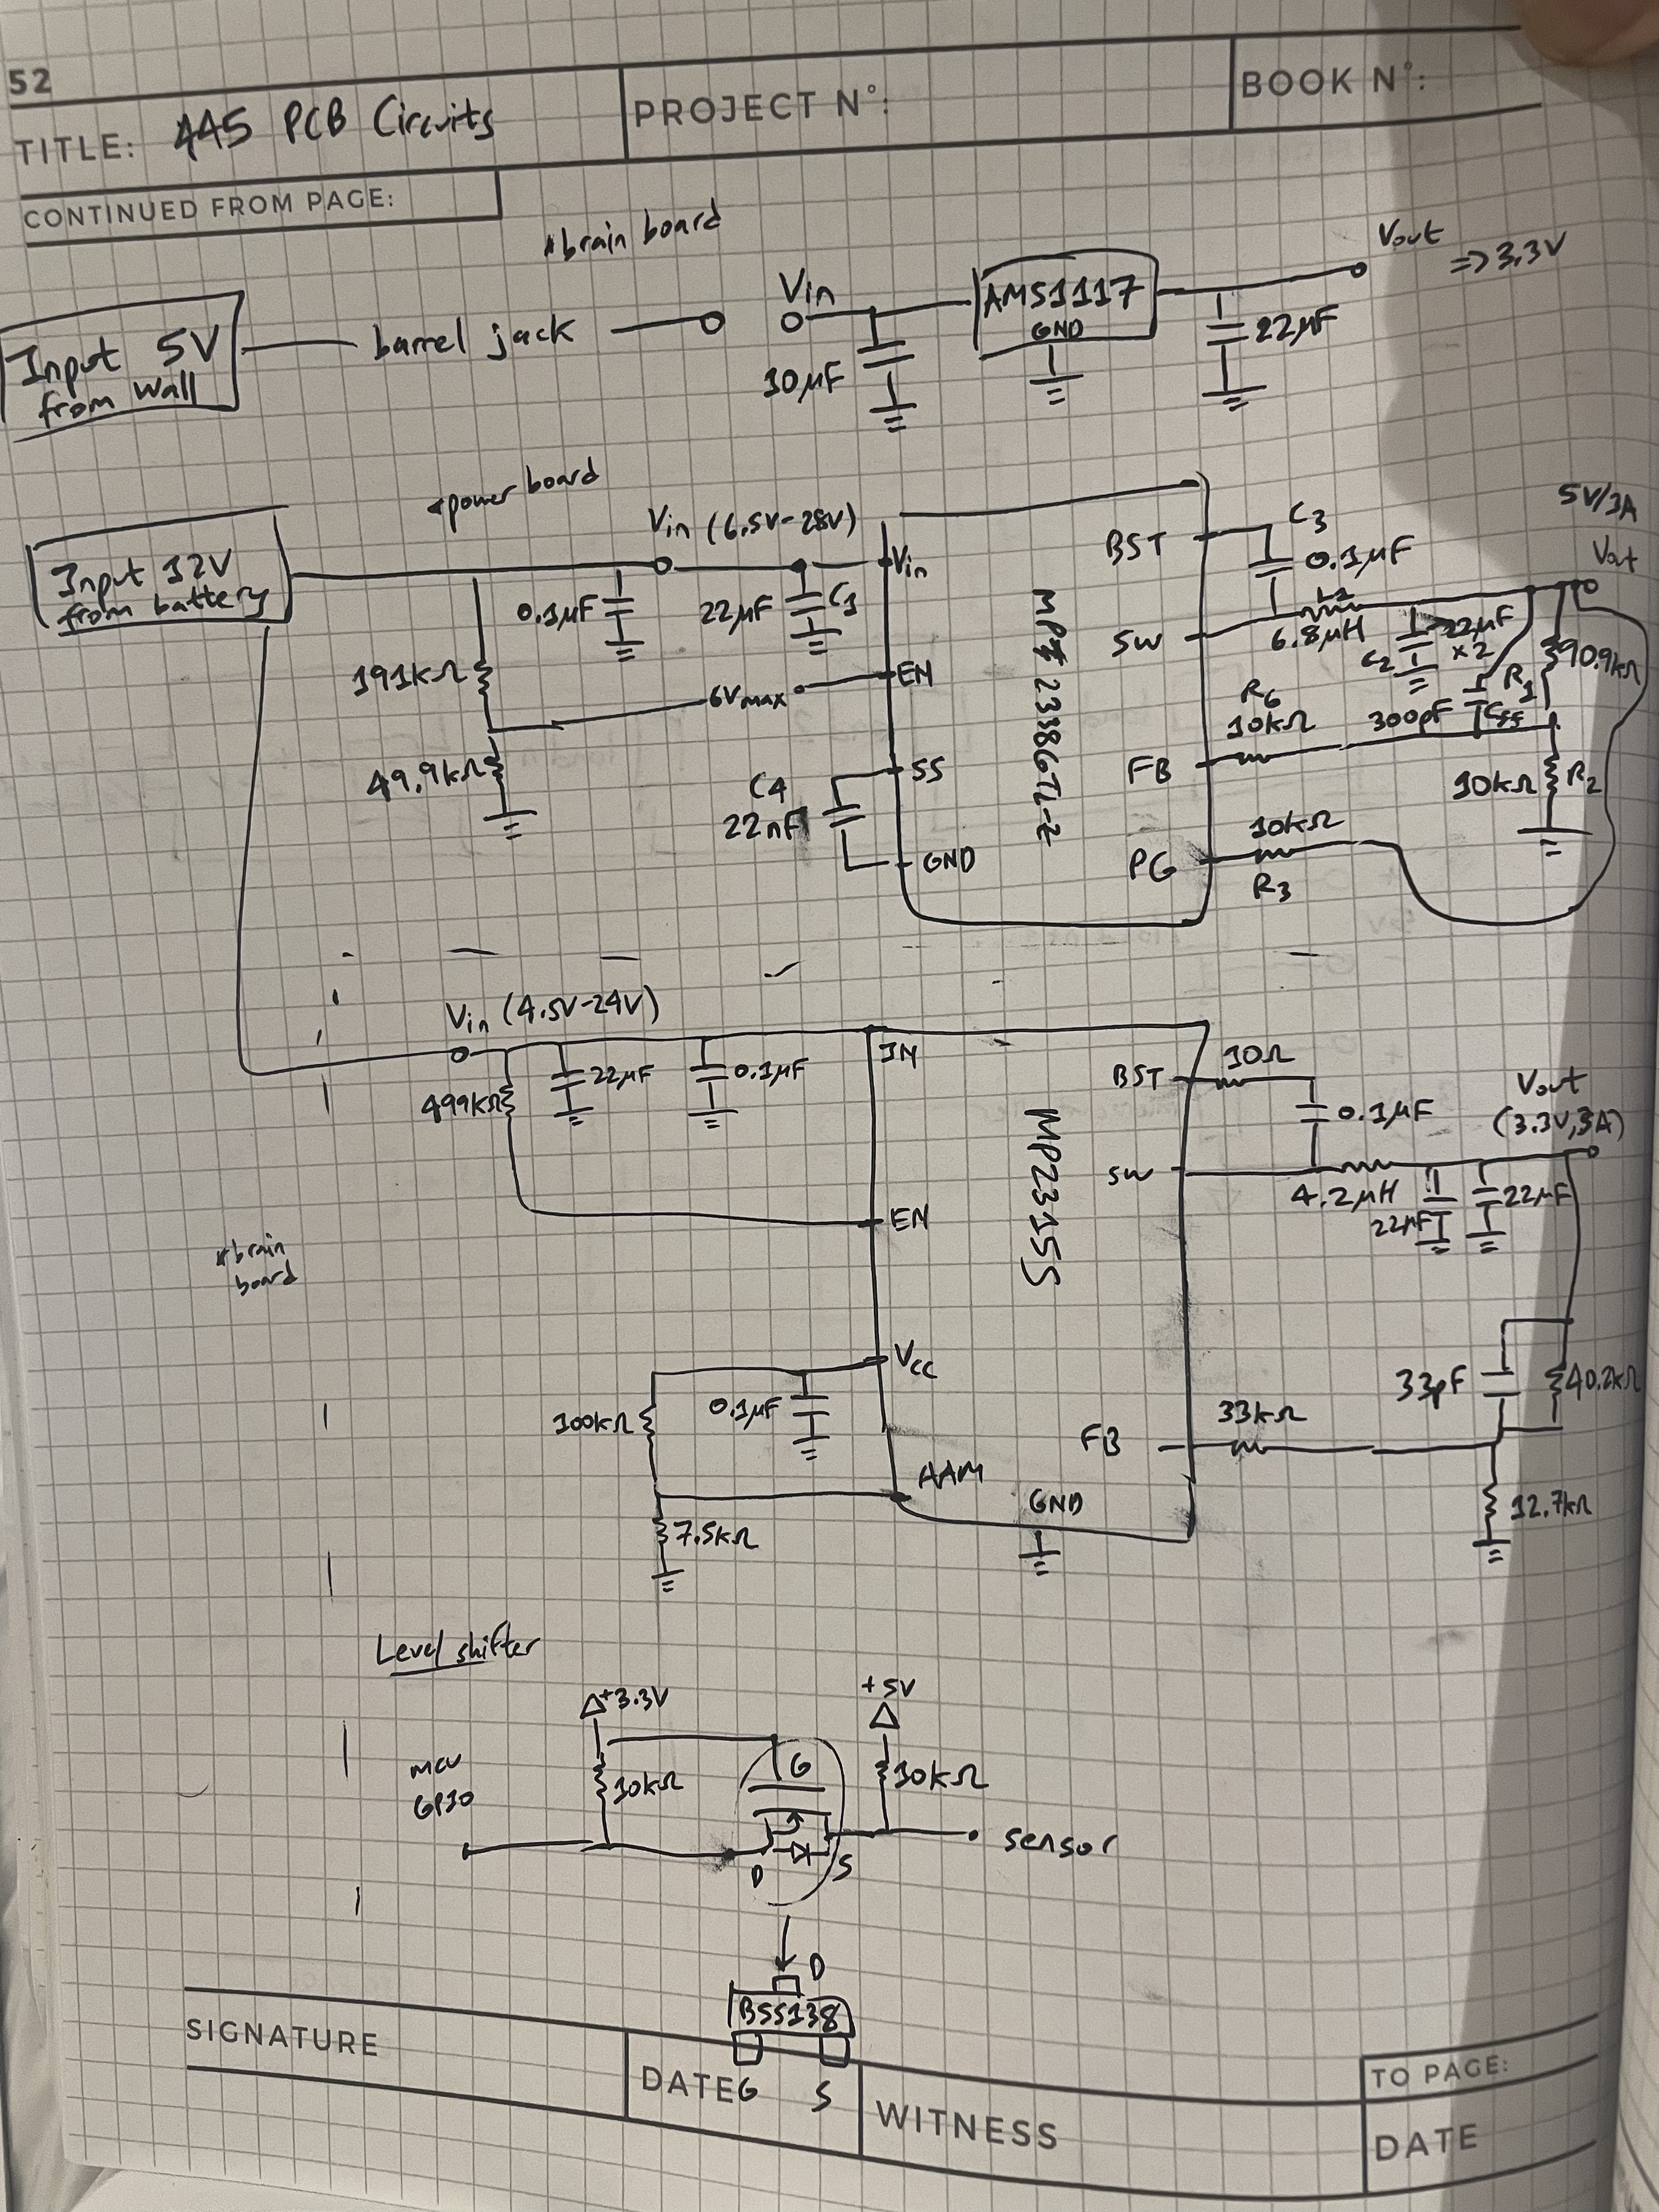 52
TITLE: 445 PCB Circuits
PROJECT N°:
BOOK N°:
CONTINUED FROM PAGE:
*brain board
Input 5V
from wall
barrel jack
Vin
10μF
AMS1117
GND
22μF
Vout
=> 3.3V
*power board
Input 12V
from battery
Vin (6.5V-28V)
0.1μF
22μF
C1
191kΩ
49.9kΩ
6Vmax
Vin
EN
SS
GND
C4
22nF
BST
SW
FB
PG
C3
0.1μF
L1
6.8μH
C2
22μF
x2
5V/3A
Vout
R1
90.9kΩ
R6
10kΩ
300pF
Cff
10kΩ
R2
10kΩ
R3
Vin (4.5V-24V)
499kΩ
22μF
0.1μF
IN
EN
VCC
AAM
GND
MP2315S
BST
SW
FB
10Ω
0.1μF
4.2μH
22μF
22μF
Vout
(3.3V, 3A)
*brain
board
100kΩ
0.1μF
7.5kΩ
33pF
40.2kΩ
33kΩ
12.7kΩ
Level shifter
+3.3V
+5V
MCU
GPIO
10kΩ
G
10kΩ
D
S
sensor
D
BSS138
G
S
SIGNATURE
DATE
WITNESS
TO PAGE:
DATE